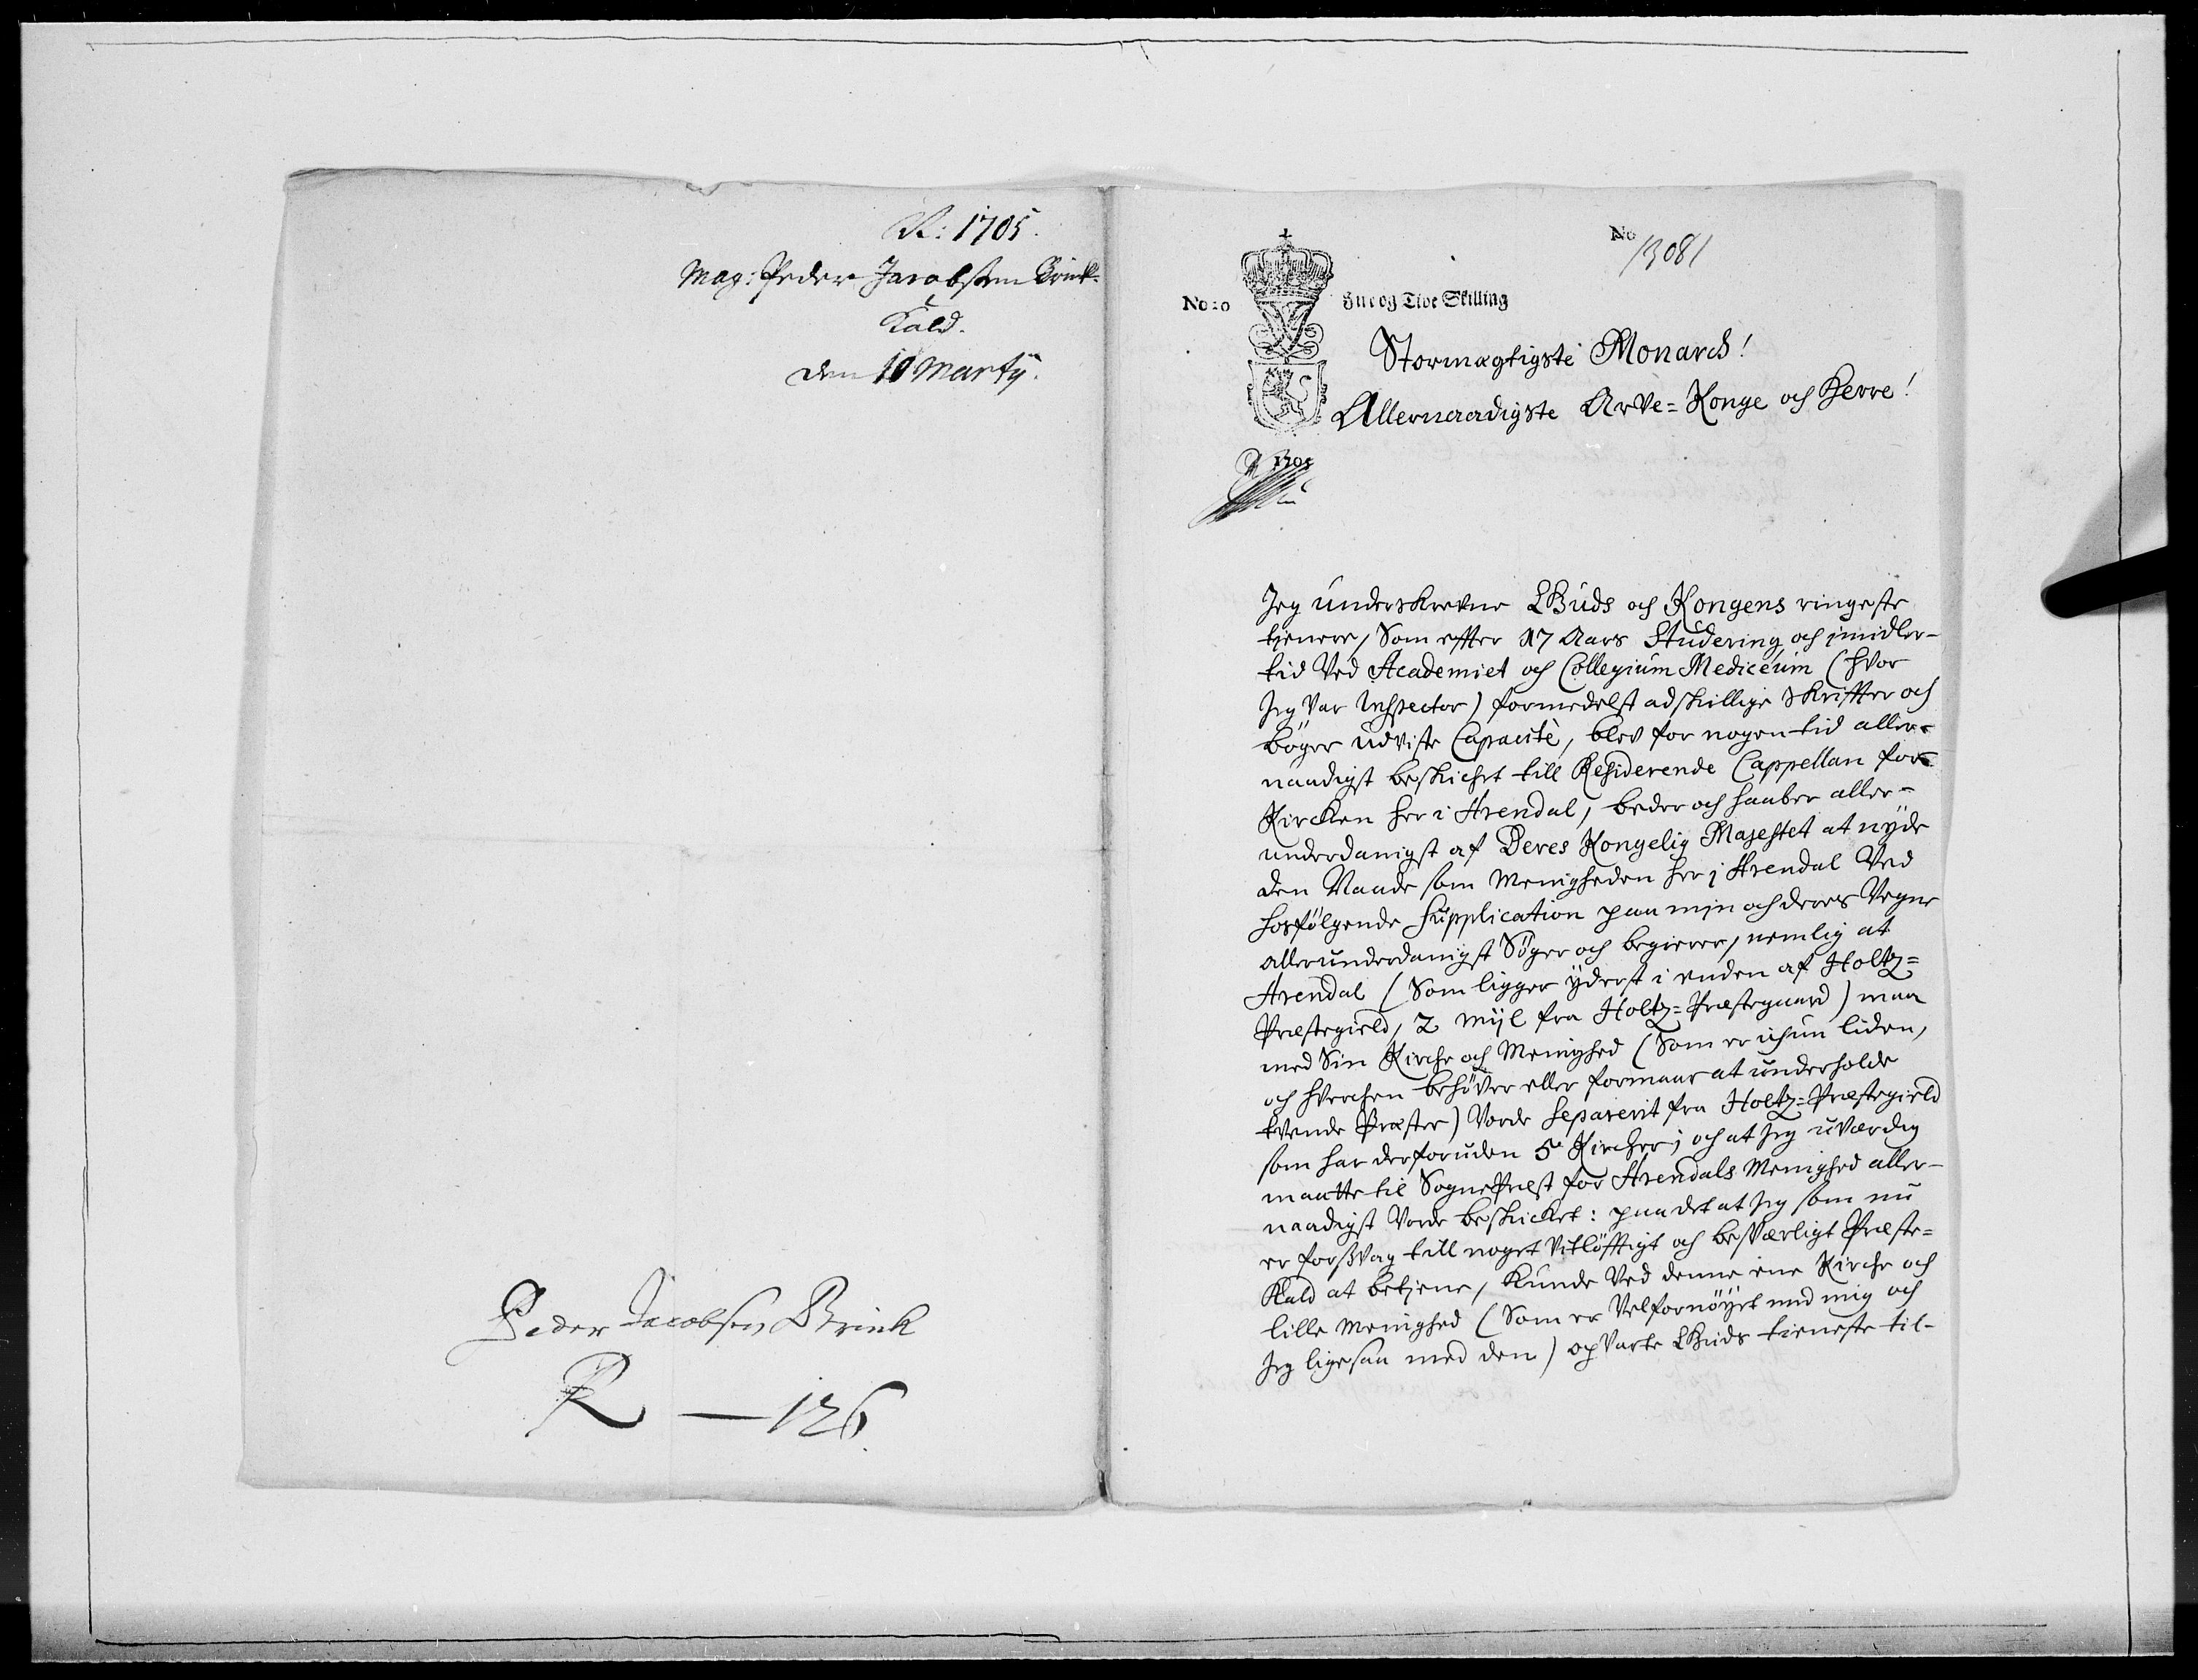 R: 1705.
Mag: Peder Jacobsøn Brink-
Kald.
den 10 Martij.
Peder Jacobsen Brink
R — 126.
No 13081
No: 0
Fire og Tive Skilling
Stormægtigste Monarch!
Allernaadigste Arve-Konge och Herre!
1705
Jeg underskrevne Guds och Kongens ringeste
tienere, Som effter 17 Aars Studering och imidler-
tid Ved Academiet och Collegium Mediceum (hvor
Jeg Var Inspector) formedelst adskillige skriffter och
bøger udviste Capacitè, blev for nogen tid aller-
naadigst beskicket till Residerende Cappellan for
Kircken her i Arendal, beder och haaber aller-
underdanigst af Deres Kongelig Majestet at nyde
den Naade som Menigheden her i Arendal Ved
hosfölgende Supplication paa min och deres Vegne
allerunderdanigst Söger och begierer, nemlig at
Arendal (Som ligger yderst i enden af Holtz-
Præstegield, 2 Mijl fra Holtz-Præstegaard) maa
med Sin Kirche och Menighed (Som er ichun liden,
och hverchen behöver eller formaar at underholde
tvende Præster) Vorde Separerit fra Holtz-Præstegield
som har derforuden 5 Kircher; och at Jeg uVærdig
maatte til SognePræst for Arendals Menighed aller-
naadigst Vorde beskicket: paa det at Jeg som nu
er forsvag till noget Vitlöfftigt och besværligt Præste-
Kald at betiene, kunde Ved denne ene Kirche och
lille Menighed (Som er Velfornöyet med mig och
Jeg ligesaa med den) opVarte Guds tieneste til-